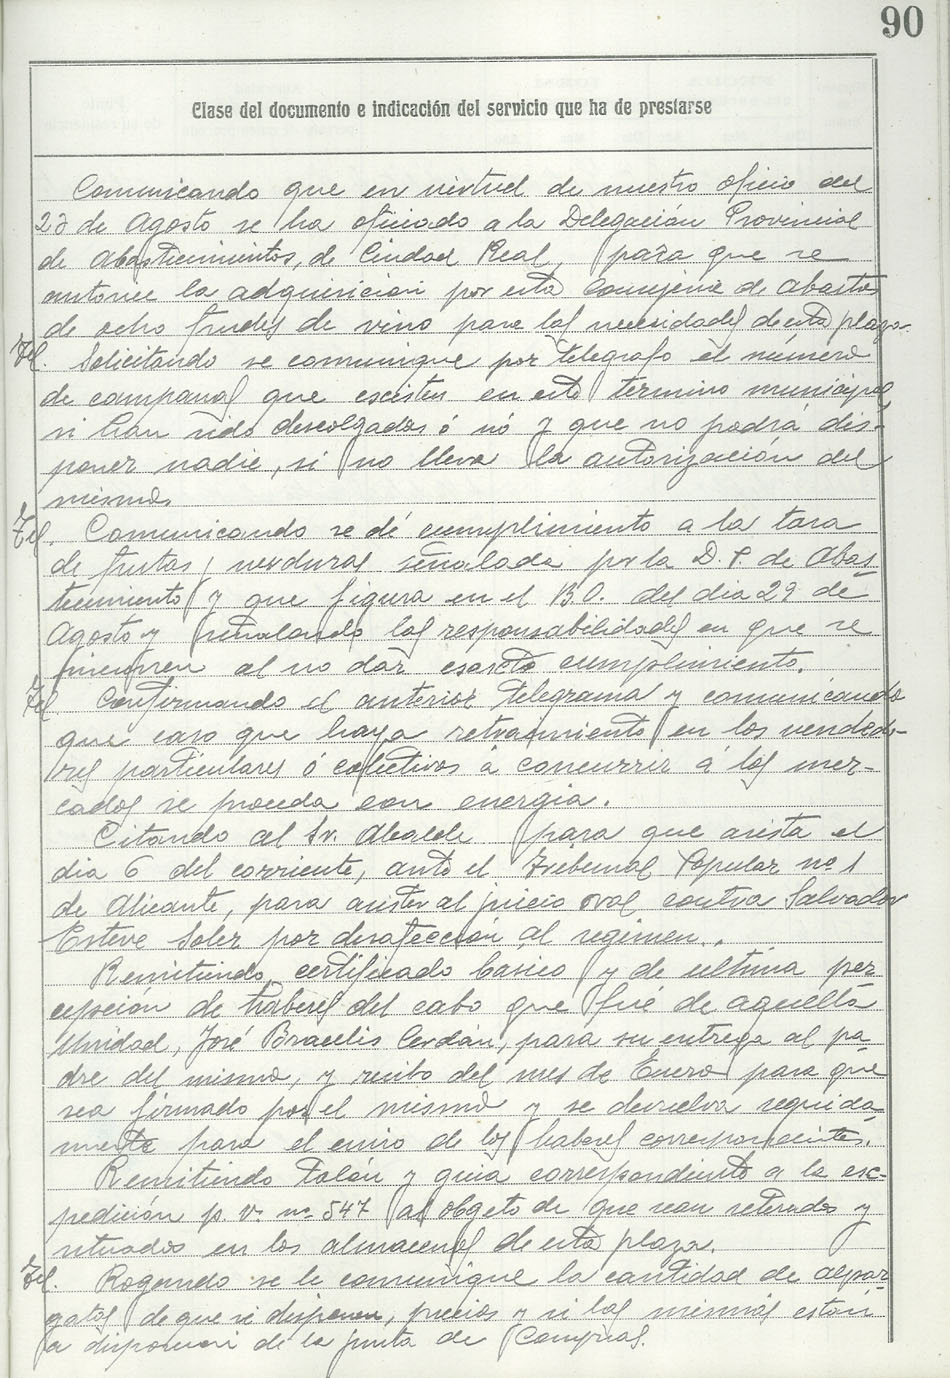 90
Clase del documento e indicación del servicio que ha de prestarse
Comunicando que en virtud de nuestro oficio del
23 de Agosto se ha oficiado a la Delegación Provincial
de Abastecimientos, de Ciudad Real, para que se
autorice la adquisición por esta Consejeria de Abastos
de ocho fudes de vino para las necesidades de esta plaza.
Tel. Solicitando se comunique por telegrafo el número
de campanas que escisten en este termino municipal
si han sido descolgadas ó nó y que no podrá dis-
poner nadie, si no lleva la autorización del
mismo.
Tel. Comunicando se dé cumplimiento a la tasa
de frutas y verduras señalada por la D. P. de Abas
tecimento y que figura en el B.O. del dia 29 de
Agosto y señalando las responsabilidades en que se
incurren al no dar esacto cumplimiento.
Tel. Confirmando el anterior telegrama y comunicando
que caso que haya retraimiento en los vendedo-
res particulares ó colectivos á concurrir á los mer-
cados se proceda con energia.
Citando al Sr. Alcalde para que asista el
dia 6 del corriente, ante el Tribunal Popular nº 1
de Alicante, para asister al juicio oral contra Salvador
Esteve Soler por desafección al regimen.
Remitiendo certificado basico y de ultima per
cepción de haberes del cabo que fué de aquella
Unidad, José Bracelis Cerdán, para su entrega al pa
dre del mismo, y recibo del mes de Enero para que
sea firmado por el mismo y se devuelva seguida
mente para el envio de los haberes correspondientes.
Remitiendo talón y guia correspondiente a la esc-
pedición p. v. nº 547 al obgeto de que sean retirados y
situados en los almacenes de esta plaza.
Tel. Rogando se le comunique la cantidad de alpar
gatas de que se disponen, precios y si las mismas están
a disposición de la junta de Compras.